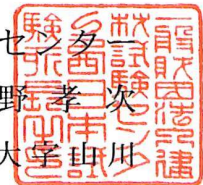 センター
野孝次
大字山川
一般財団法人建
材試験センタ
ー西日本試
験所長之印